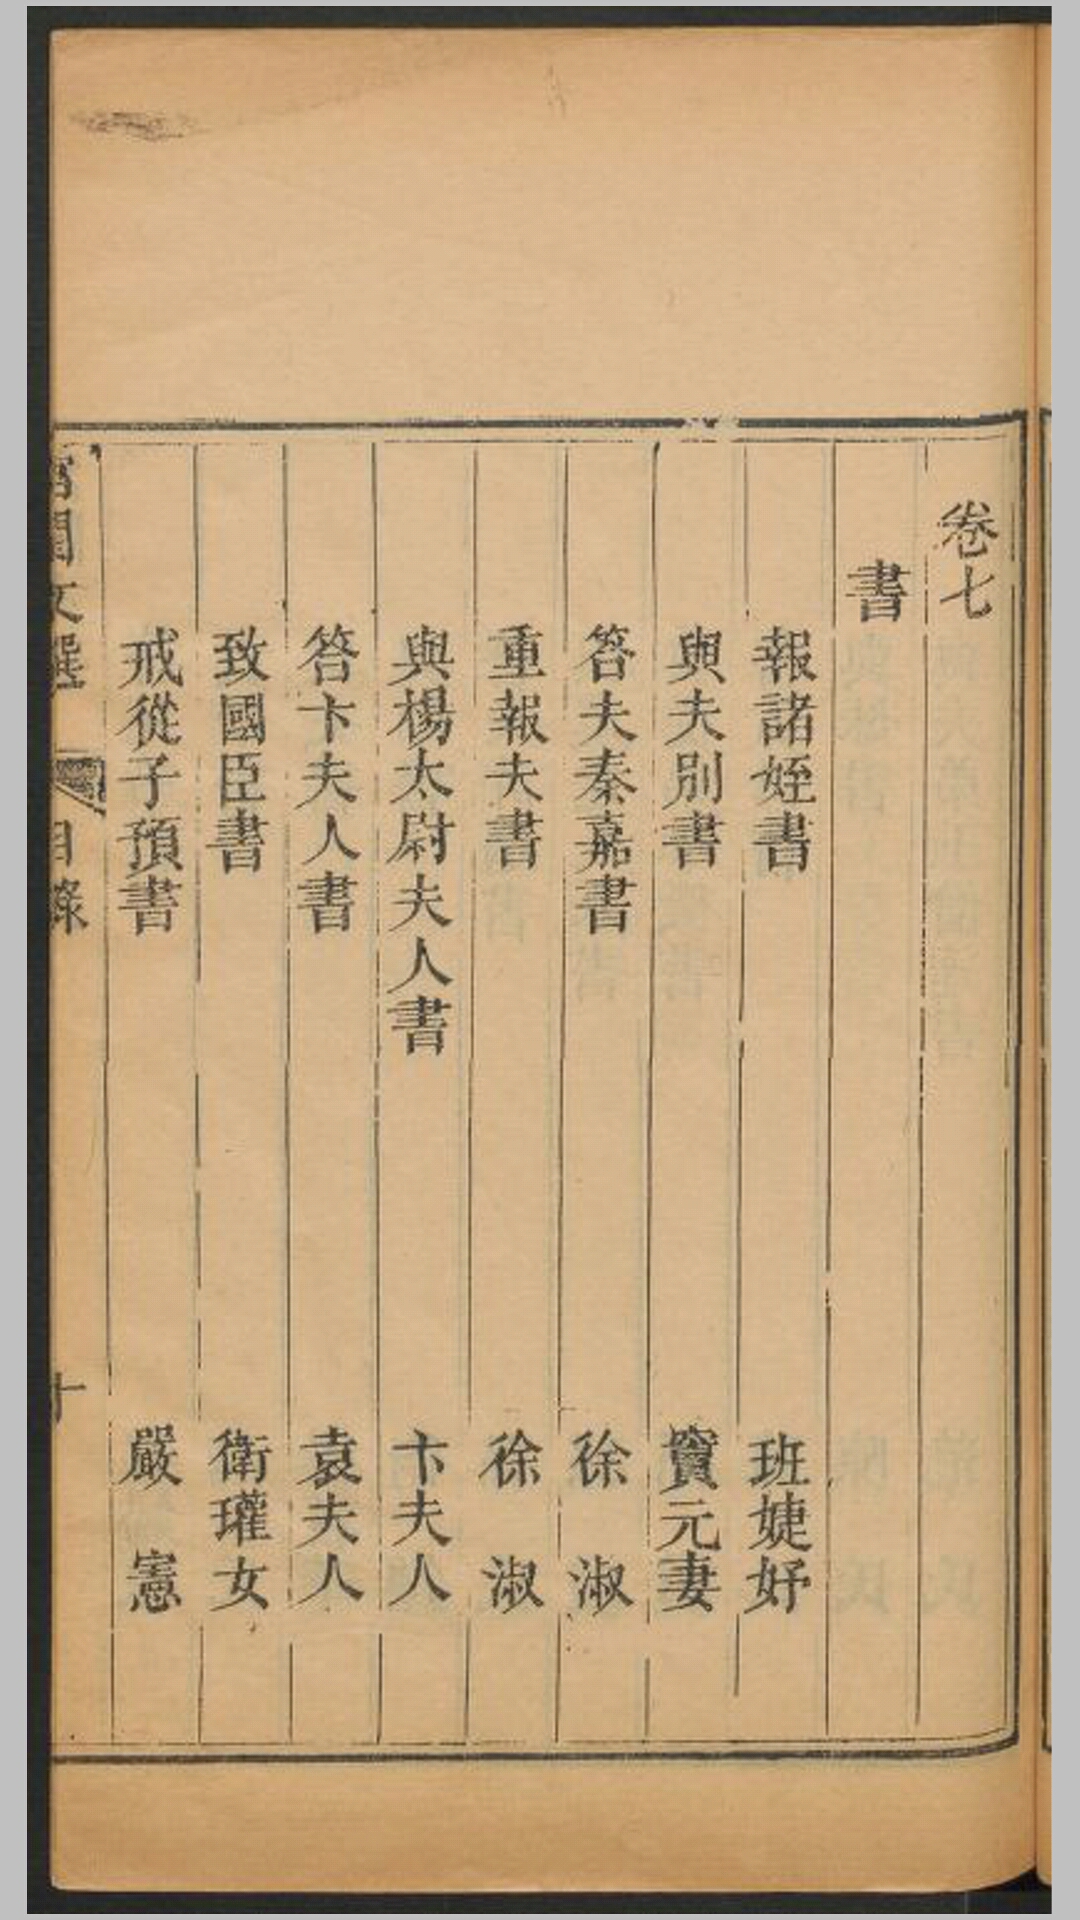 卷七
書
報諸姪書 班婕妤
與夫別書 竇元妻
答夫秦嘉書 徐淑
重報夫書 徐淑
與楊太尉夫人書 卞夫人
答卞夫人書 袁夫人
致國臣書 衛瓘女
戒從子預書 嚴憲
宮閨文選 目錄 十